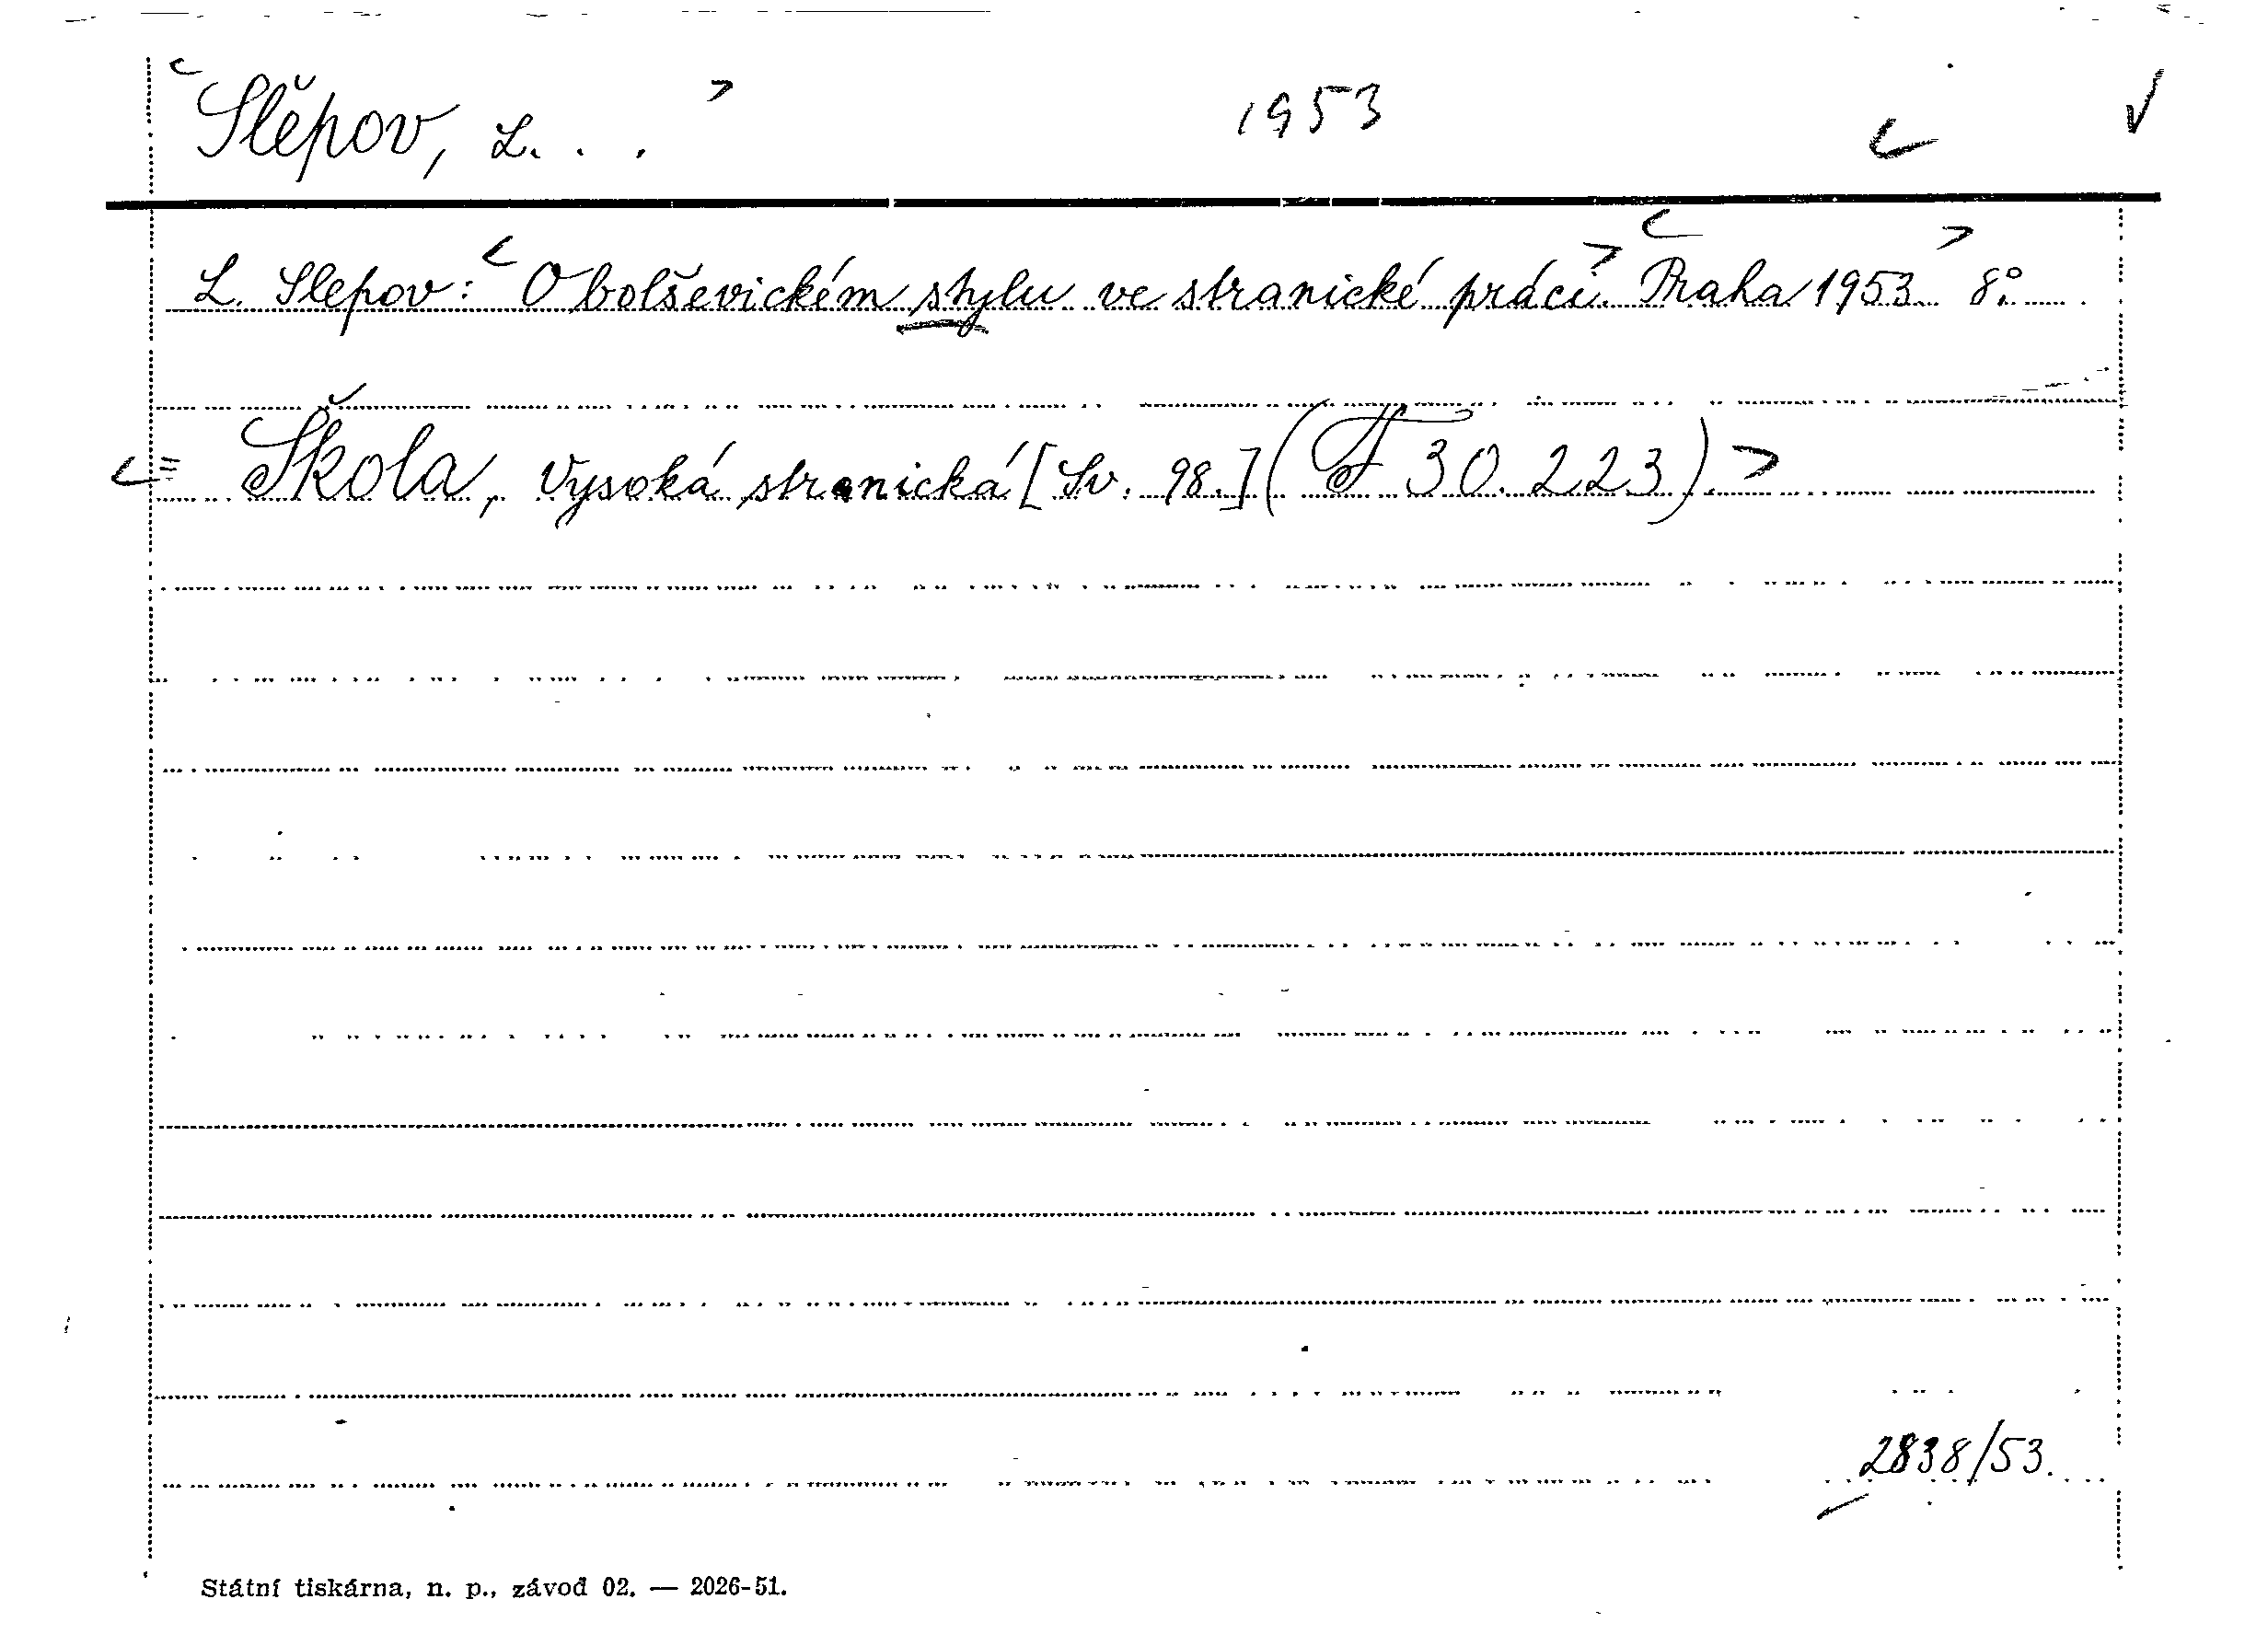 Slěpov, L. . . 1953
L. Slepov: O bolševickém stylu ve stranické práci. Praha 1953 8°.
= Škola, Vysoká stranická [Sv. 98.] (F 30.223).
2838/53.
Státní tiskárna, n. p., závod 02. — 2026-51.